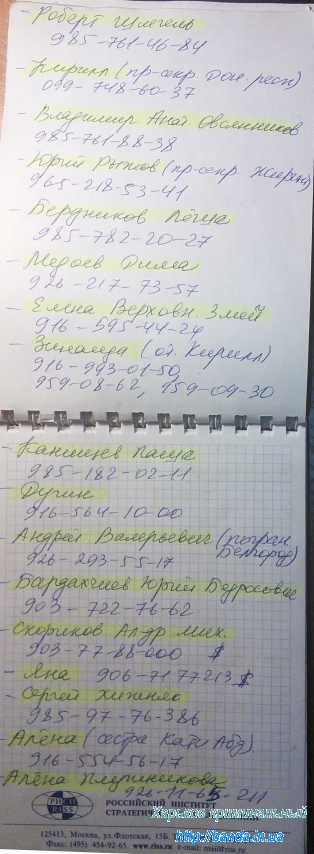 - Роберт Шлегель
985-761-46-84
- Кирилл (пр-секр. Дон. респ)
099-748-60-37
- Владимир Анат. Овсянников
985-761-88-38
- Юрий Рыжов (пр-секр.
965-218-53-41
- Бердников Лёша
985-782-20-27
- Медоев Дима
926-217-73-57
- Елена Верховн.
916-595-44-24
- Зинаида (от. Кирилл)
916-993-01-50,
959-08-62, 959-09-30
- Канищев Паша
985-182-02-11
- Дугин
916-564-10-00
- Андрей Валерьевич (погран Белгород)
926-293-55-17
- Бардахчиев Юрий Бедросович
903-722-76-62
- Скориков Алур мих.
903-77-88-000 $
- Яна 906-7177213 $
- Сергей
985-97-76-386
- Алена (сестра Кати Абд)
916-554-56-17
- Алёна
926-11-65-211
Харьков криминальный
РОССИЙСКИЙ ИНСТИТУТ
СТРАТЕГИЧЕ
125413, Москва, ул.Флотская, 15Б
Факс: (495) 454-92-65. www.riss.ru e-mail: